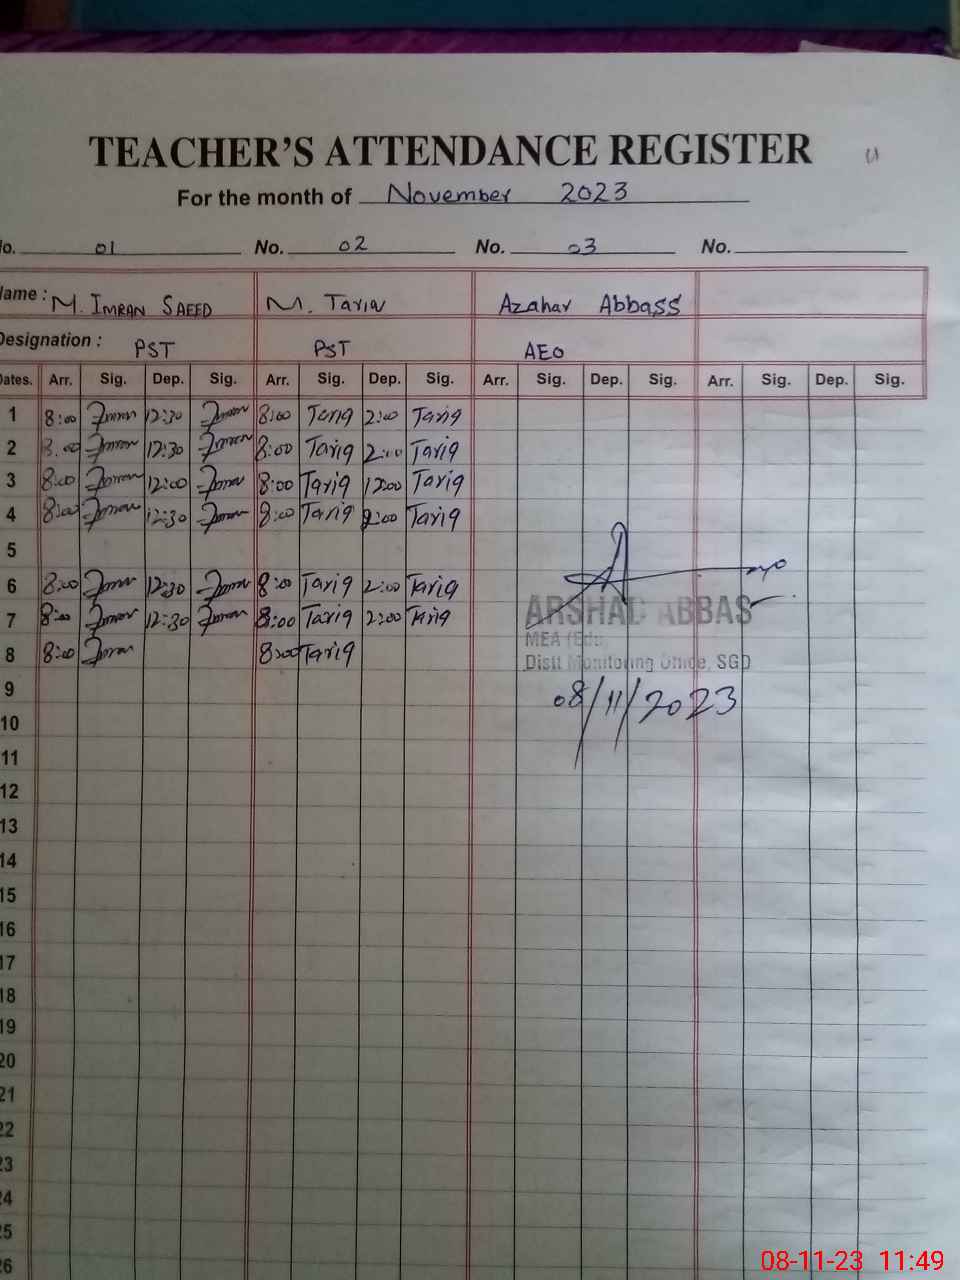 TEACHER'S ATTENDANCE REGISTER
For the month of November 2023
No. 01 No. 02 No. 03 No.
Name : M. IMRAN SAEED M. Tariq Azahar Abbass
Designation : PST PST AEO
Dates. Arr. Sig. Dep. Sig. Arr. Sig. Dep. Sig. Arr. Sig. Dep. Sig. Arr. Sig. Dep. Sig.
1 8:00 Imran 12:30 Imran 8:00 Tariq 2:00 Tariq
2 8:00 Imran 12:30 Imran 8:00 Tariq 2:00 Tariq
3 8:00 Imran 12:00 Imran 8:00 Tariq 12:00 Tariq
4 8:00 Imran 12:30 Imran 8:00 Tariq 2:00 Tariq
5
6 8:00 Imran 12:30 Imran 8:00 Tariq 2:00 Tariq
7 8:00 Imran 12:30 Imran 8:00 Tariq 2:00 Tariq
ARSHAD ABBAS
MEA (Edu)
8 8:00 Imran 8:00 Tariq
Distt Monitoring Office, SGD
9
08/11/2023
10
11
12
13
14
15
16
17
18
19
20
21
22
23
24
25
26
08-11-23 11:49